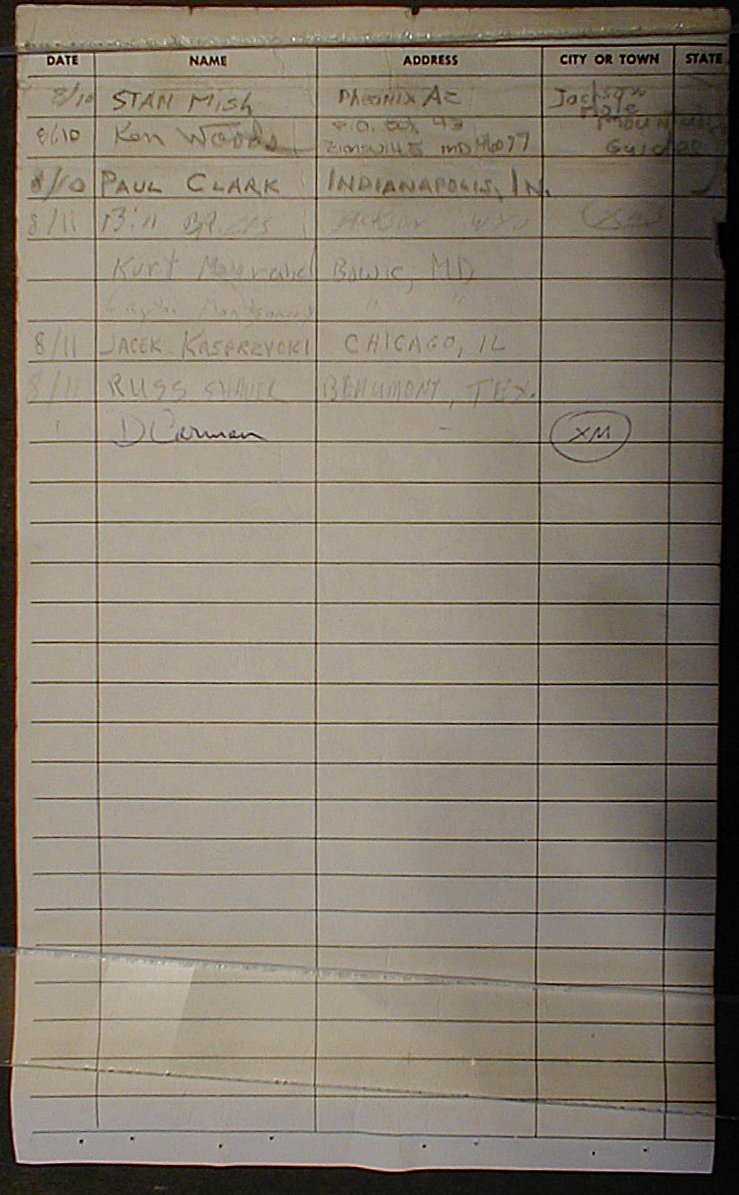 DATE NAME ADDRESS CITY OR TOWN STATE
8/10 STAN Mish Phoenix Az Jackson Hole Mountain Guides
8/10 Ken Woods P.O. Box 43 Zionsville IND 46077
8/10 PAUL CLARK INDIANAPOLIS, IN.
8/11 Bill
Kurt Bowie, MD
" "
8/11 JACEK KASPRZYCKI CHICAGO, IL
8/11 RUSS BEAUMONT, TEX.
D Carman XM